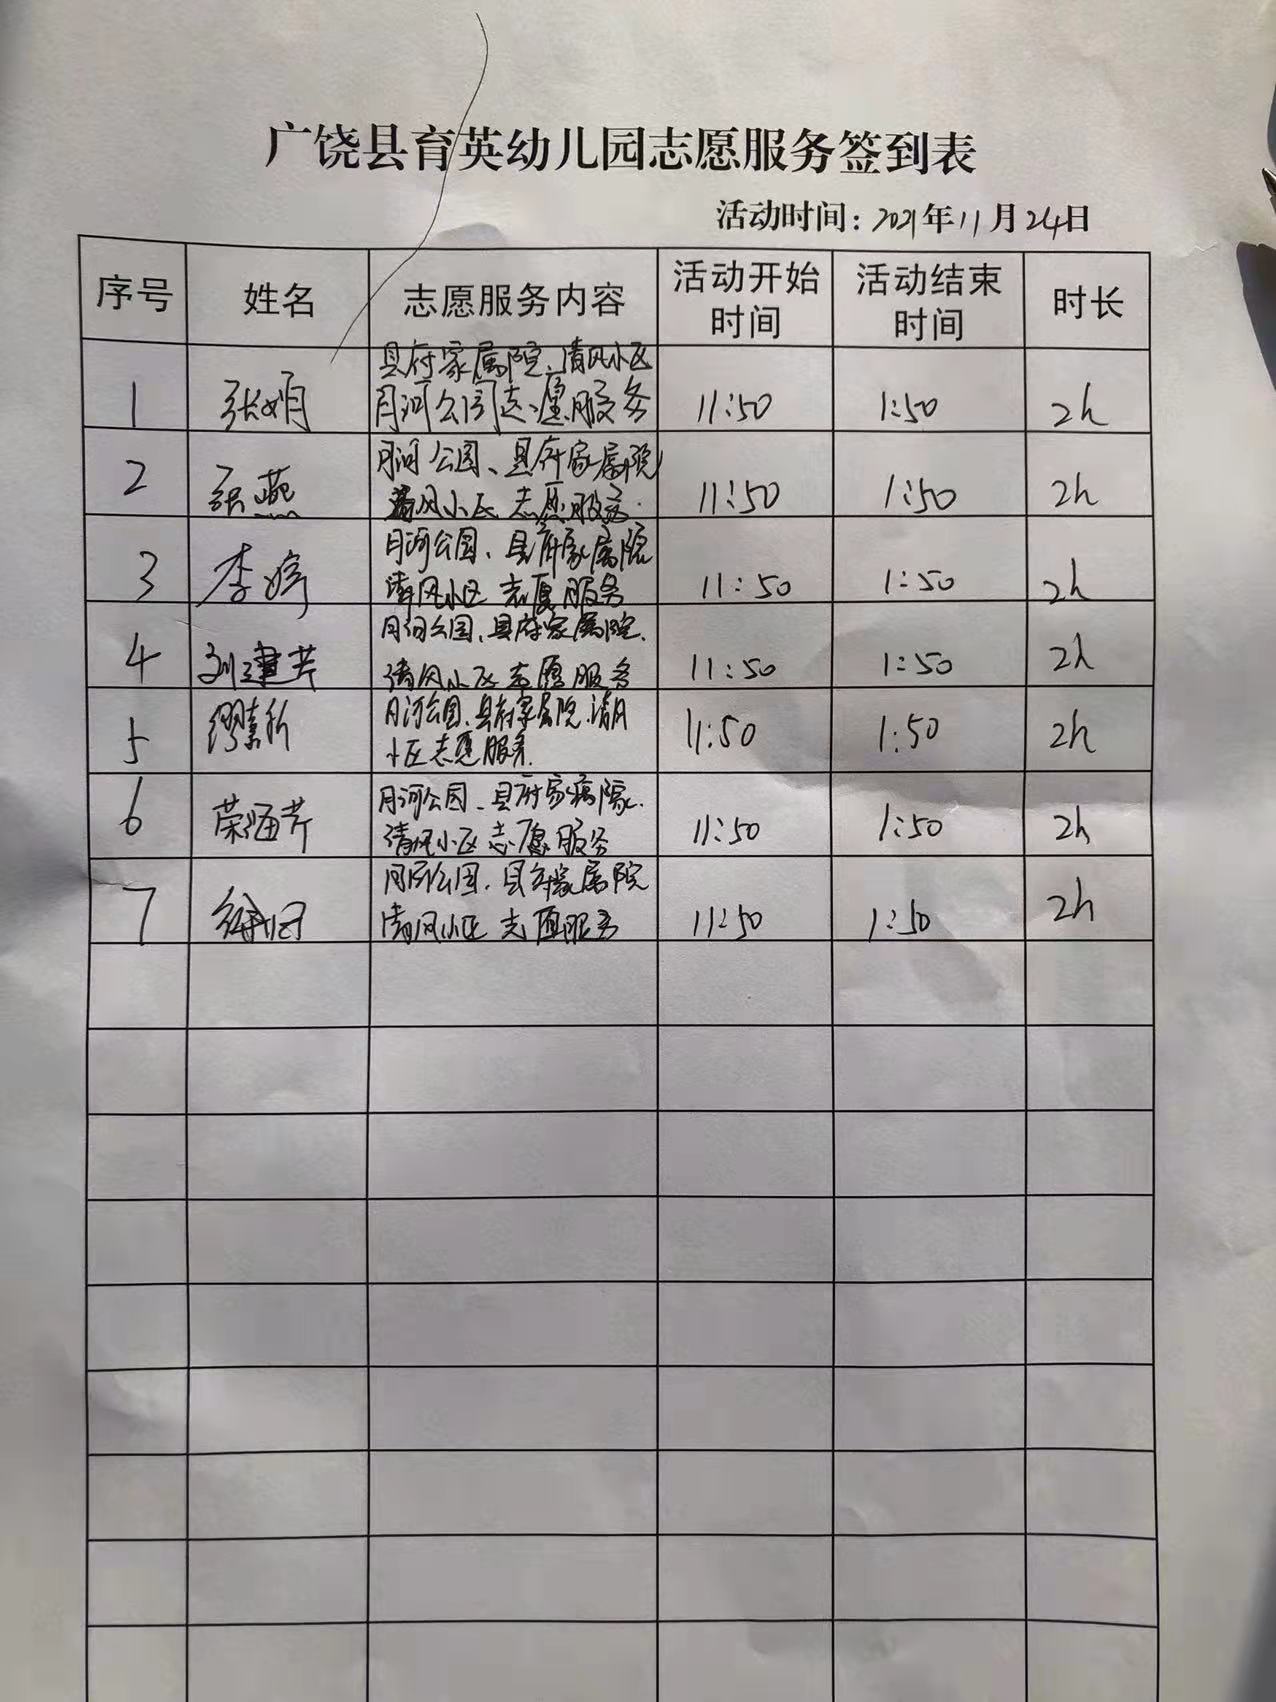 广饶县育英幼儿园志愿服务签到表
活动时间：2021年11月24日
序号 姓名 志愿服务内容 活动开始时间 活动结束时间 时长
1 张娟 县府家属院、清风小区
月河公园志愿服务 11:50 1:50 2h
2 张燕 月河公园、县府家属院
清风小区志愿服务. 11:50 1:50 2h
3 李婷 月河公园、县府家属院
清风小区志愿服务 11:50 1:50 2h
4 刘建芹 月河公园、县府家属院、
清风小区志愿服务 11:50 1:50 2h
5 月河公园、县府家属院、清风
小区志愿服务. 11:50 1:50 2h
6 荣海芹 月河公园、县府家属院、
清风小区志愿服务 11:50 1:50 2h
7 月河公园、县府家属院
清风小区志愿服务 11:50 1:50 2h